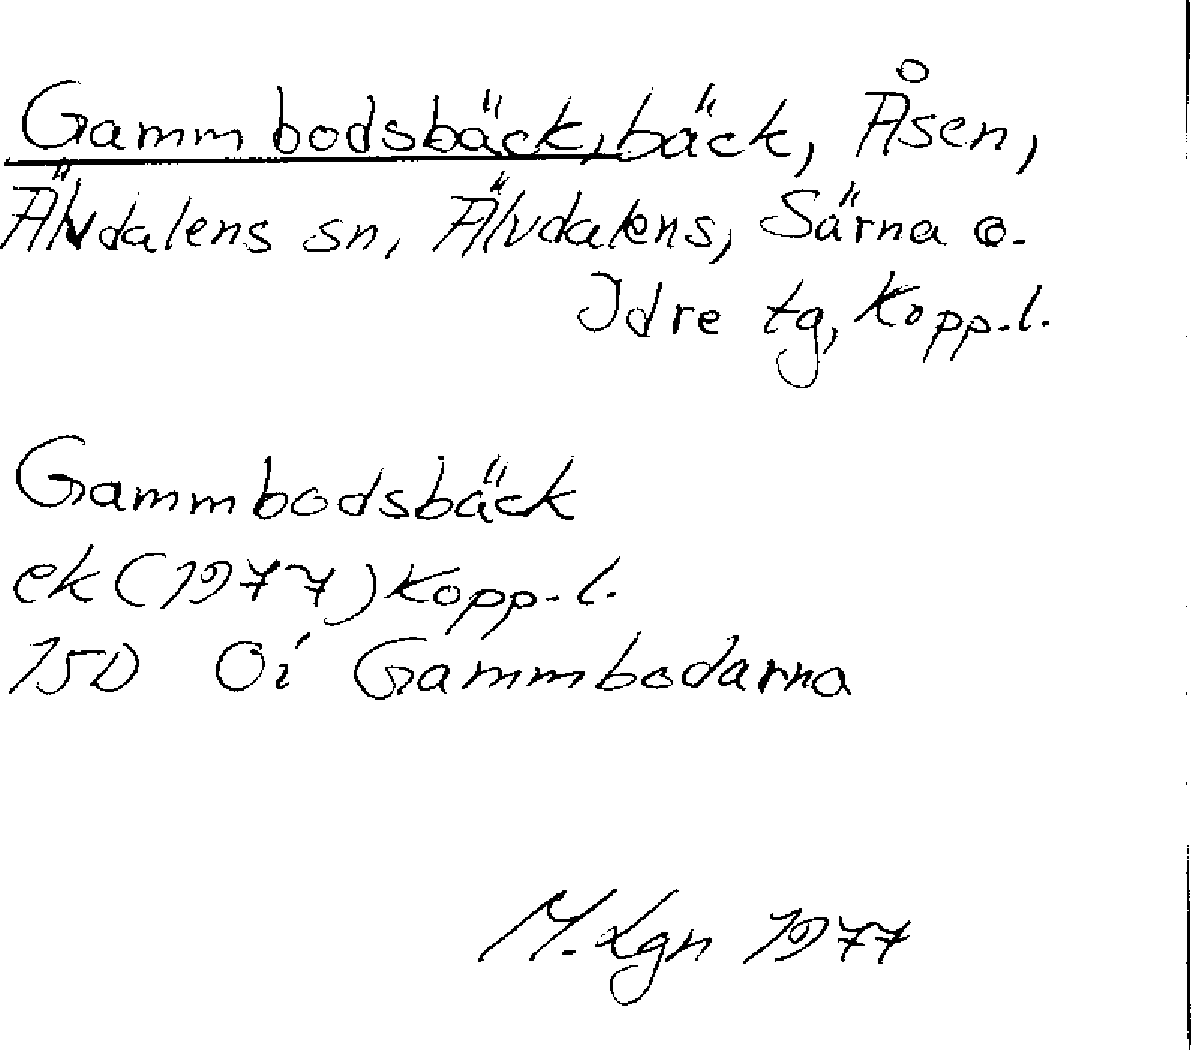 Gammbodsbäck, bäck, Åsen,
Älvdalens sn, Älvdalens, Särna o.
Idre tg, Kopp.l.
Gammbodsbäck
ek (1977) Kopp.l.
15D 0i Gammbodarna
M. Lgn 1977